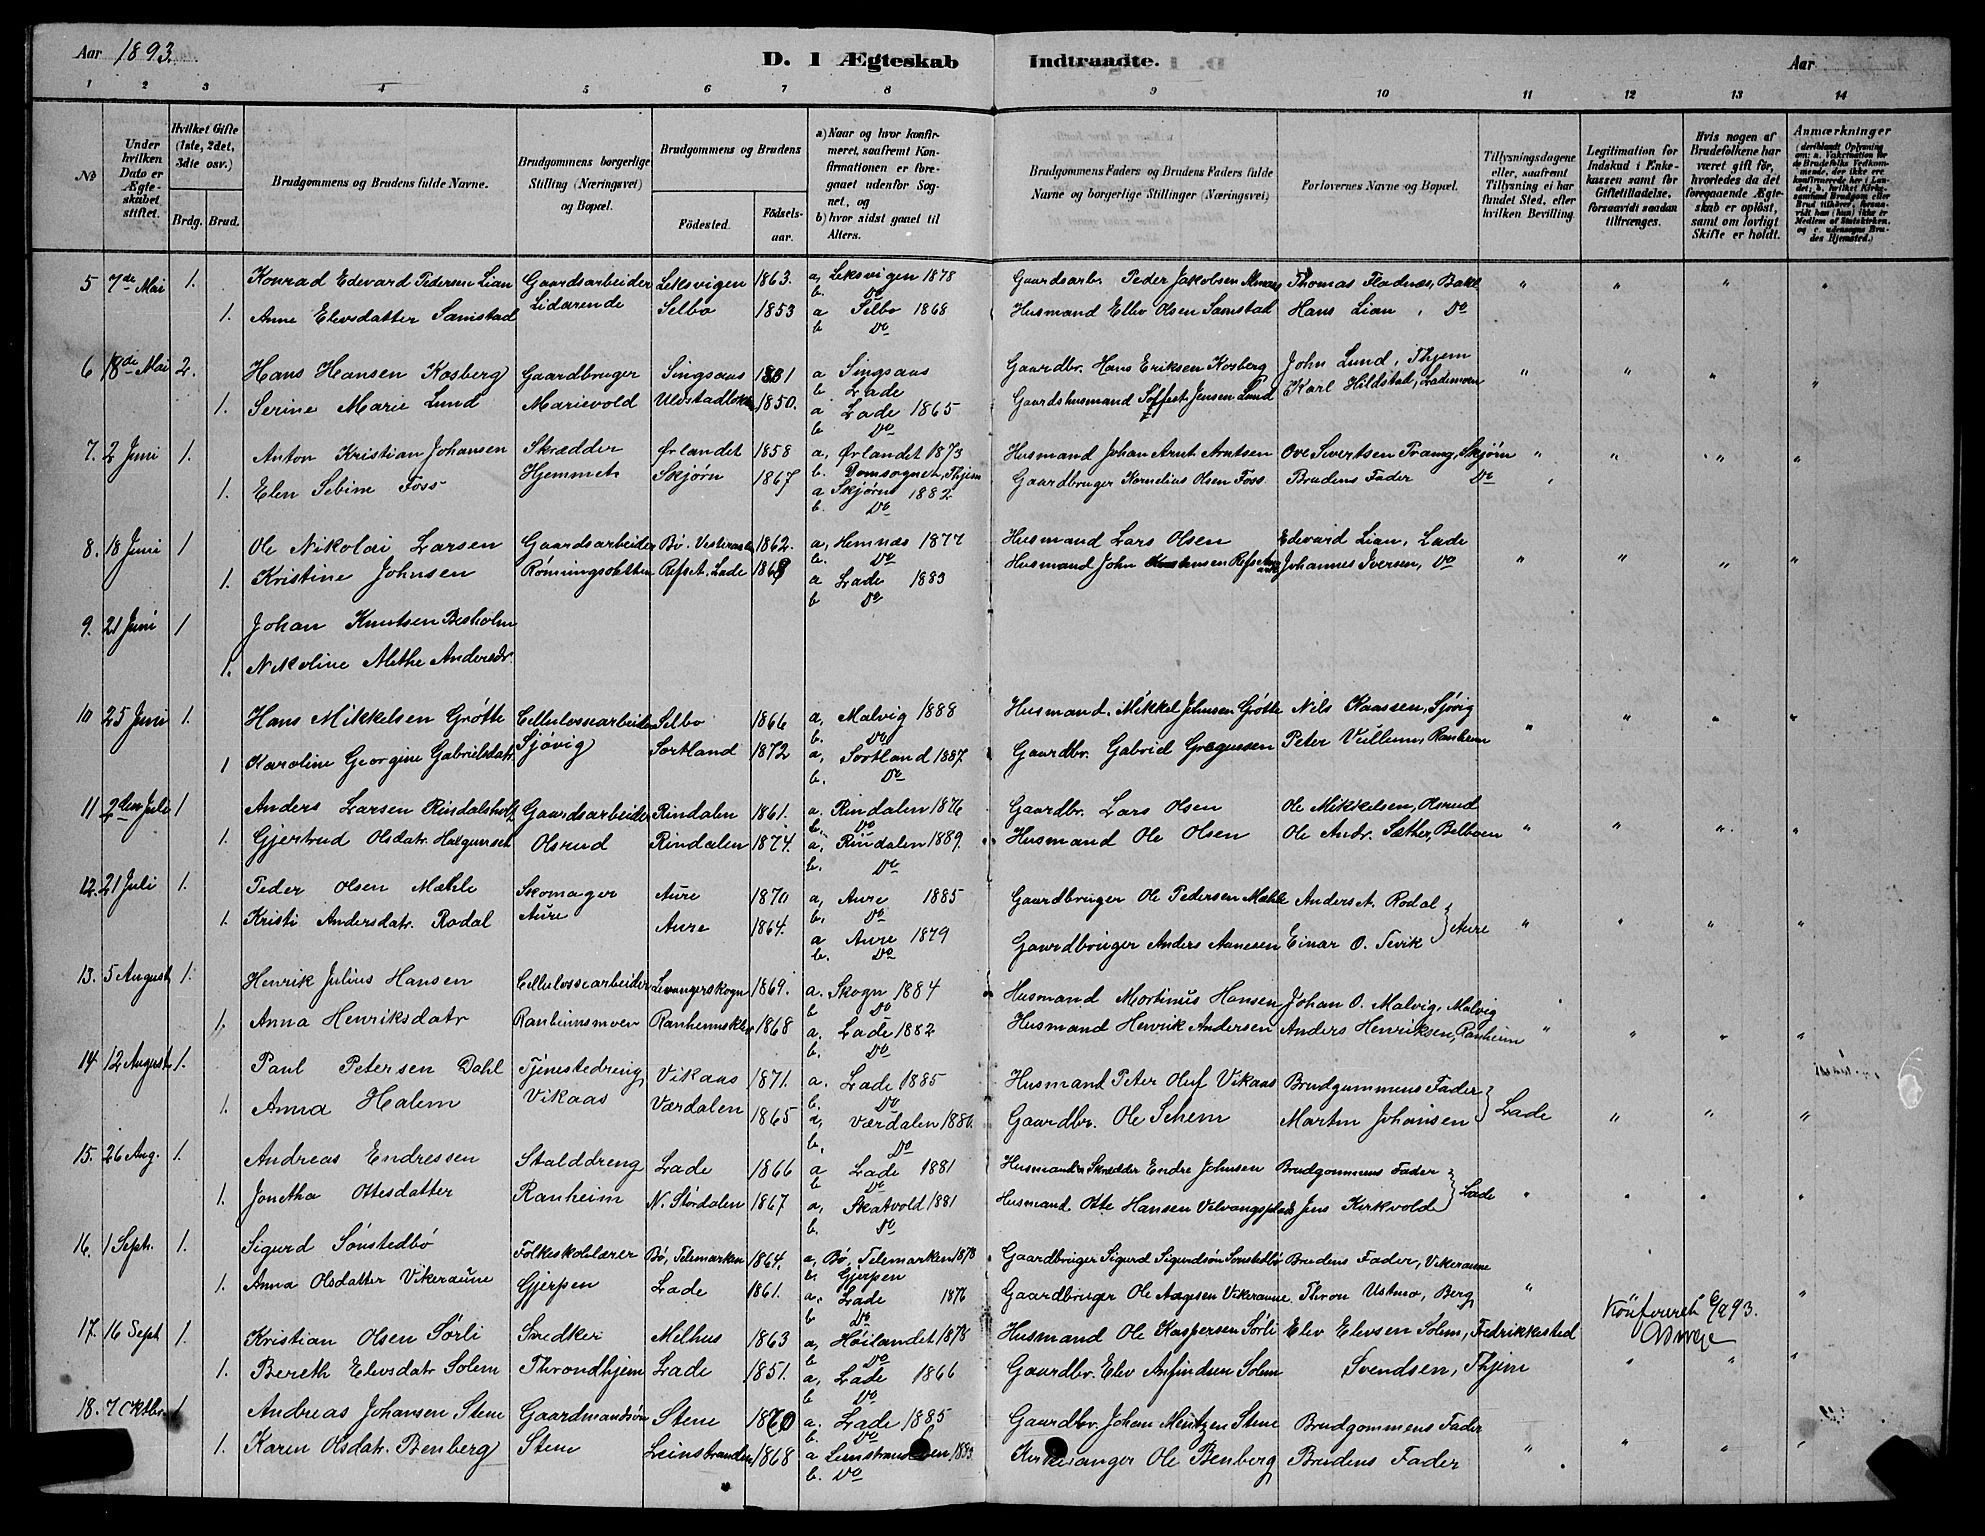 Aar 1893. D. I Ægteskab Indtraadte. Aar
1 2 3 4 5 6 7 8 9 10 11 12 13 14
No
Under hvilken Dato er Ægteskabet stiftet.
Hvilket Gifte (1ste, 2det, 3die osv.)
Brdg. Brud.
Brudgommens og Brudens fulde Navne.
Brudgommens borgerlige Stilling (Næringsvei) og Bopæl.
Brudgommens og Brudens
Fødested. Fødselsaar.
a) Naar og hvor konfirmeret, saafremt Konfirmationen er foregaaet udenfor Sognet, og
b) hvor sidst gaaet til Alters.
Brudgommens Faders og Brudens Faders fulde Navne og borgerlige Stillinger (Næringsvei)
Forlovernes Navne og Bopæl.
Tillysningsdagene eller, saafremt Tillysning ei har fundet Sted, efter hvilken Bevilling.
Legitimation for Indskud i Enkekassen samt for Giftetilladelse, forsaavidt saadan tiltrænges.
Hvis nogen af Brudefolkene har været gift før, hvorledes da det foregaaende Ægteskab er opløst, samt om lovligt Skifte er holdt.
Anmærkninger (deriblandt Oplysning om: a. Vakcination for de Brudefolks Vedkommende, der ikke ere konfirmerede her i Landet; b. hvilket Kirkesamfund Brudgom eller Brud tilhører, forsaavidt han (hun) ikke er Medlem af Statskirken, og c. udensogns Brudes Hjemsted.)
5 7de Mai 1. Konrad Edevard Pedersen Lian Gaardsarbeider Leksvigen 1863. a, Leksvigen 1878 Gaardsarb. Peder Jakobsen Thomas Fladnæs, Bakl.
b. Do
1. Anne Elevsdatter Samstad Lidarende Selbo 1853 a Selbo 1868 Husmand Ellev Olsen Samstad Hans Lian, Do
b Do
6 18de Mai 2. Hans Hansen Kosberg Gaardbruger Singsaas a Singsaas Gaardbr. Hans Eriksen Kosberg John Lund, Thjem
b. Lade
1. Serine Marie Lund Marievold 1850. a Lade 1865 Gaardshusmand Jensen Lund Karl Hildstad, Lademoen
b Do
7. 2 Juni 1. Anton Kristian Johansen Skrædder Ørlandet 1858 a, Ørlandet 1873 Husmand Johan Arnt Arntsen Ove Sivertsen Tramg, Skjørn
b. Domsognet, Thjem
1. Elen Sebine Foss Hjemmet Skjørn 1867 a Skjørn 1882 Gaardbruger Kornelius Olsen Foss Brudens Fader Do
b. Do
8. 18 Juni 1 Ole Nikolai Larsen Gaardsarbeider Bø. Vesteraalen 1862. a, Hemnæs 1877 Husmand Lars Olsen Edevard Lian, Lade
b. Do
1. Kristine Johnsen Rønningsletten Refset. Lade a Lade 1883 Husmand John Johannes Iversen, Do
b Do
9. 21 Juni 1 Johan Knutsen Besholm
1. Nikoline Methe Andersdr.
10 25 Juni 1. Hans Mikkelsen Grøtte Cellulosearbeider Selbo 1866 a, Malvig 1888 Husmand. Mikkel Johnsen Grøtte Nils Klaassen, Sjøvig
b. Do
1 Karoline Georgine Gabrielsdatr Sjøvig Sortland 1872 a, Sortland 1887. Gaardbr. Gabriel Gregussen Peter Vullum, Ranheim
b. Do
11 2den Juli 1 Anders Larsen Rindalsholt Gaardsarbeider Rindalen 1861. a. Rindalen 1876 Gaardbr. Lars Olsen Ole Mikkelsen, Olsrud
b. Do
1. Gjertrud Olsdatr. Halgunset Olsrud Rindalen 1874. a, Rindalen 1889. Husmand Ole Olsen Ole Andr. Sæther, Belboen
b. Do
12. 21 Juli 1. Peder Olsen Mæhle Skomager Aure 1870 a, Aure 1885 Gaardbruger Ole Pedersen Mæhle Anders A. Rodal
b. Do
1. Kristi Andersdatr. Rodal Aure Aure 1864. a Aure 1879 Gaardbruger Anders Aanesen Einar O. Tevik } Aure
b. Do
13. 5 August 1. Henrik Julius Hansen Cellulosearbeider Levangerskogn 1869. a. Skogn 1884 Husmand Mortinus Hansen Johan O. Malvig, Malvig
b Do
1. Anna Henriksdatr Ranheimsmoen 1868 a. Lade 1882 Husmand Henrik Andersen Anders Henriksen, Ranheim
b. Do
14 12 August 1. Paul Petersen Dahl Tjenestedreng Vikaas 1871. a. Lade 1885 Husmand Peter Oluf Vikaas Brudgummens Fader
b. Do
1. Anna Halem Vikaas Værdalen 1865 a, Værdalen 1880. Gaardbr. Ole Schem Martin Johansen } Lade
b. Do
15. 26 Aug. 1. Andreas Endressen Stalddreng Lade 1866 a Lade 1881 Husmand Skrædder Endre Johnsen Brudgommens Fader
b Do
1. Jonetha Ottesdatter Ranheim N. Stördalen 1867 a, Skatvold 1881 Husmand Otte Hansen Velvangsplads Jens Kirkvolde } Lade
b. Do
16. 1 Septr. 1. Sigurd Sönstedbö Folkeskolelærer Bö, Telemarken 1864. a, Bö, Telemarken 1878 Gaardbruger Sigurd Sigurdsön Sönstedbö Brudens Fader, Vikeraune
b. Gjerpen
1. Anna Olsdatter Vikeraune Gjerpen Lade 1861. a. Lade 1876 Gaardbruger Ole Aagesen Vikeraune Thron Ustmo, Berg
b. Do
17. 16 Sept 1. Kristian Olsen Sörli Snedker Melhus 1863 a, Höilandet 1878 Husmand Ole Kaspersen Sörli Elev Elevsen Solem, Fredrikkested Konfereret 6/9 93.
b Do
1. Bereth Elevsdatr Solem Throndhjem Lade 1851. a, Lade 1866 Gaardbr. Elev Anfindsen Solem Svendsen, Thjem
b Do
18. 7 Oktbr. 1. Andreas Johansen Stene Gaardmandssøn Stene 1870 a. Lade 1885 Gaardbr. Johan Mentzen Stene Brudgommens Fader
b. Do
1. Karen Olsdatr. Benberg Stene Leinstranden 1868 a Leinstranden 1883 Kirkesanger Ole Benberg Brudens Fader
b. Do